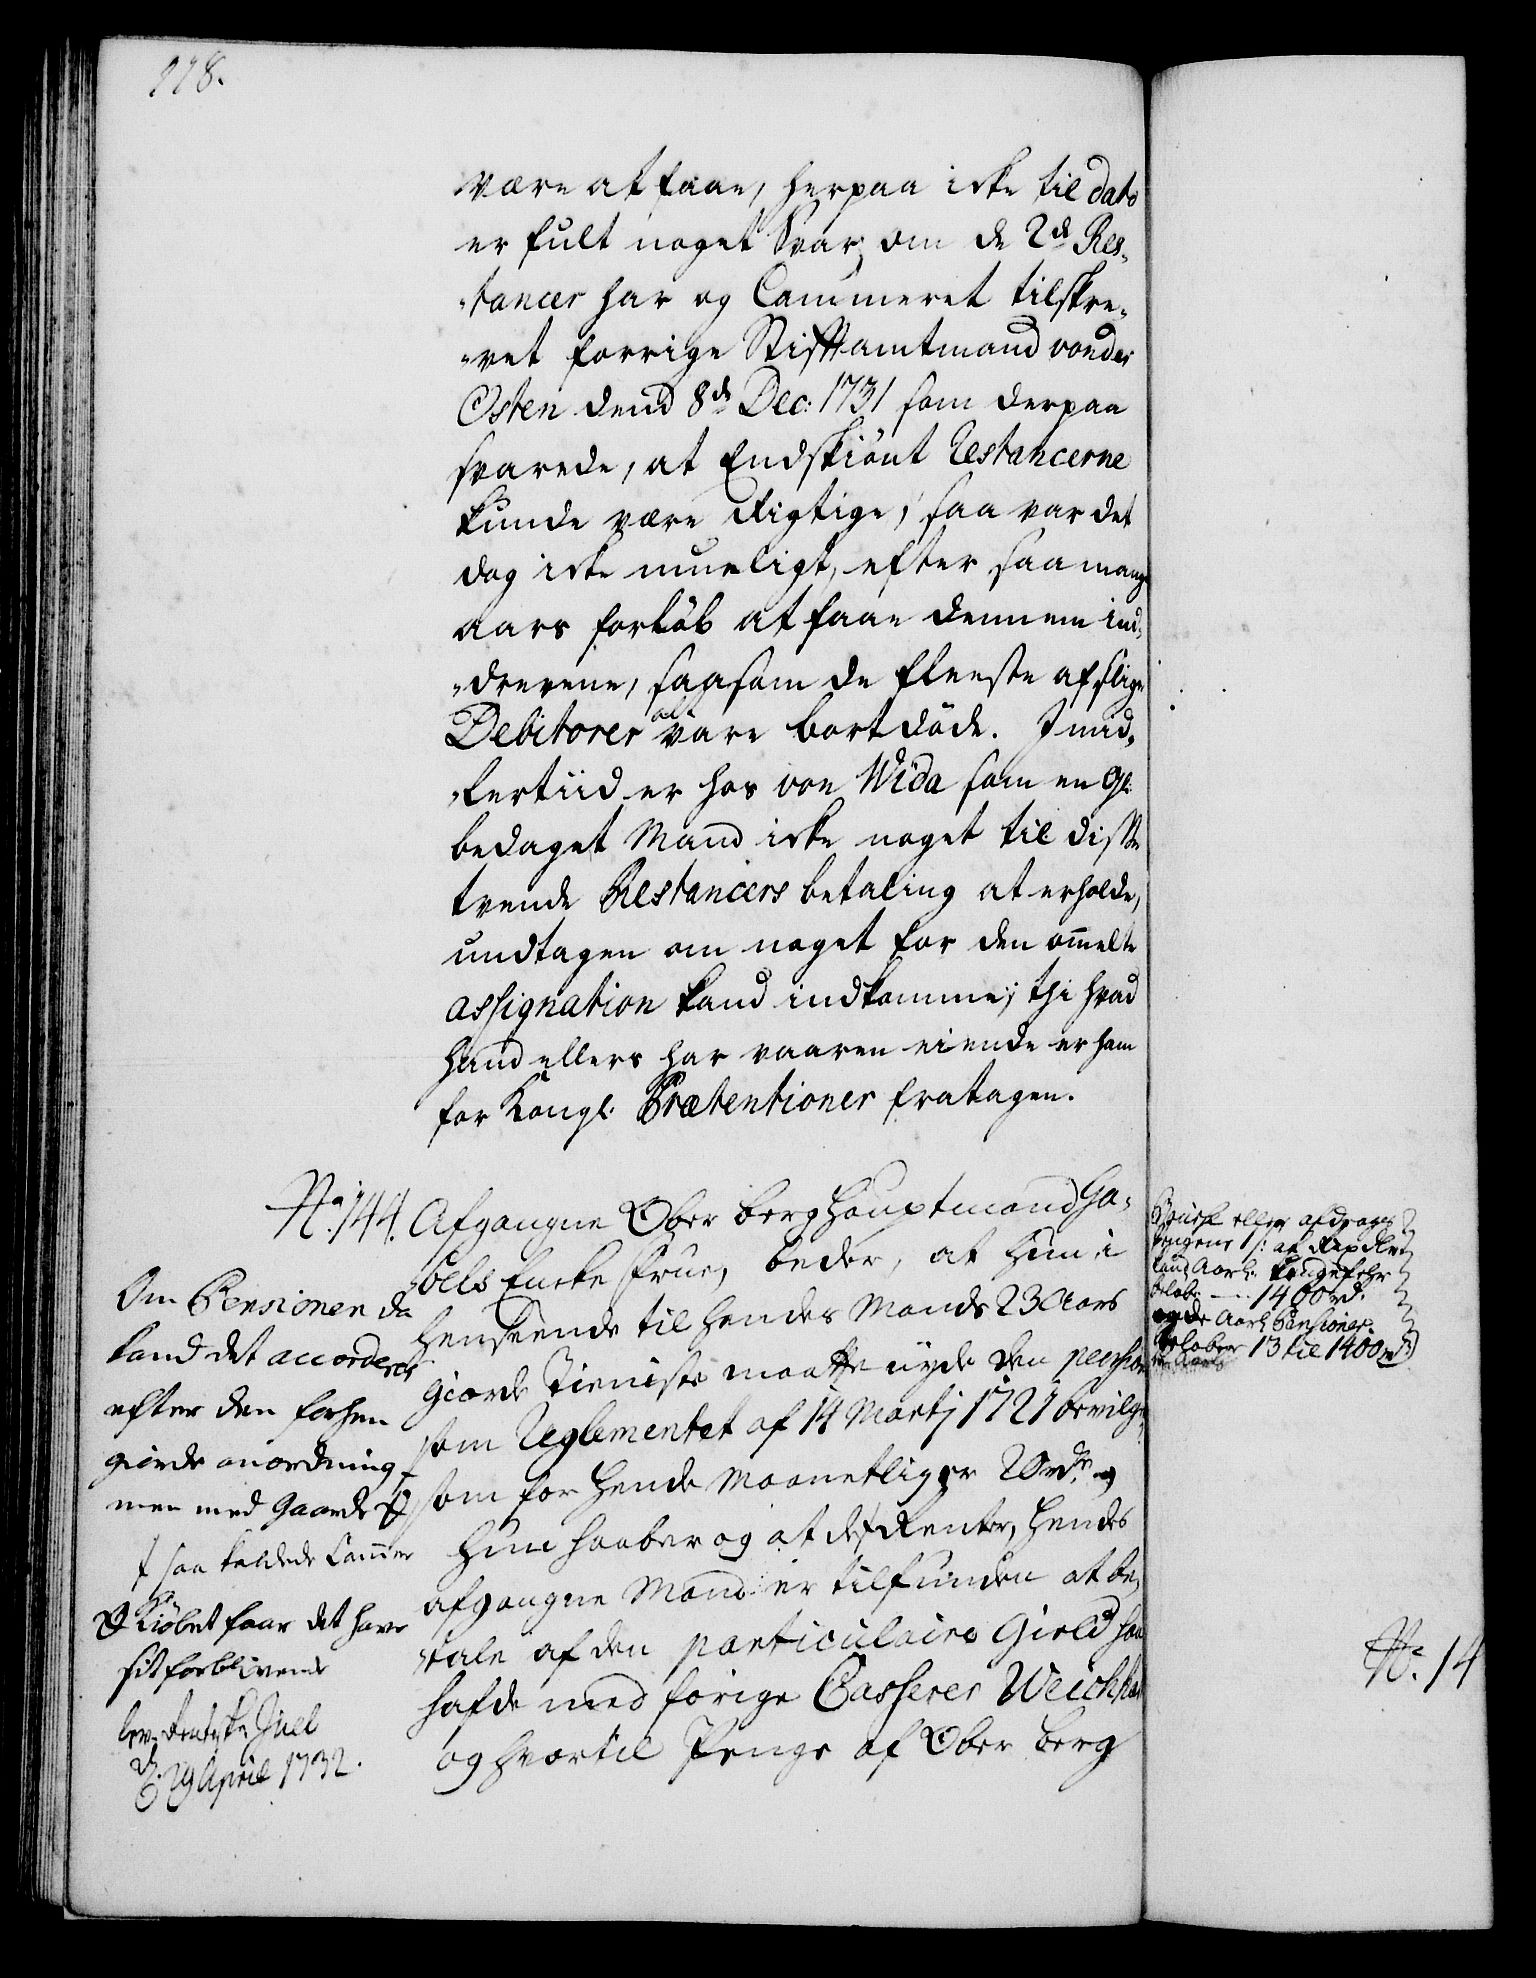 118.
være at faae, herpaa icke til dato
er fult noget Svar; om de 2de Res-
-tancer har og Cammeret tilskre-
-vet forrige Stifftamtmand vonder
Osten dend 8de Dec: 1731 som derpaa
svarede, at Endskiönt Restancerne
kunde være Rigtige, saa var det
dog icke mueligt, efter saa mange
aars forløb at faae dennem ind-
-drevene, saasom de fleeste af slige
Debitorer alt vare bortdöde. Imid-
-lertiid er hos von Wida som en gl:
bedaget Mand icke noget til disse
tvende Restancers betaling at erholde,
undtagen om noget for den omelte
assignation kand indkomme; thi hvad
hand ellers har vaaren eiende er ham
for Kongl: Prætentioner fratagen.
No. 144. Afgangne Ober berghauptmand Ga-
-bels Encke Frue, beder, at hun i
henseende til hendes Mands 23 Aars
giorde Tieniste maatte nyde den pension
som Reglementet af 14 Martj 1721 bevilger,
som for hende Maanetlig er 20 rdr. og
hun haaber og at de Renter, hendes
afgangne Mand er tilfunden at be-
-tale af den particulaire Gield han
hafde med forige Casserer Weichhar
og hvortil Penge af Ober berg
Om Pensionen da
kand det accorderes
efter den forhen
giorde anordning
men med Gaarde
saa kaldede Cammer
Kiøbet faar det have
sit forblivende
lev: Rentskr: Juel
D. 29 April 1732.
eller afdrags
pengene /: at
Aarl:
beløb 1400 rd.
og de Aarl: Pensioner
beløber 13 til 1400 rd:)
No. 14